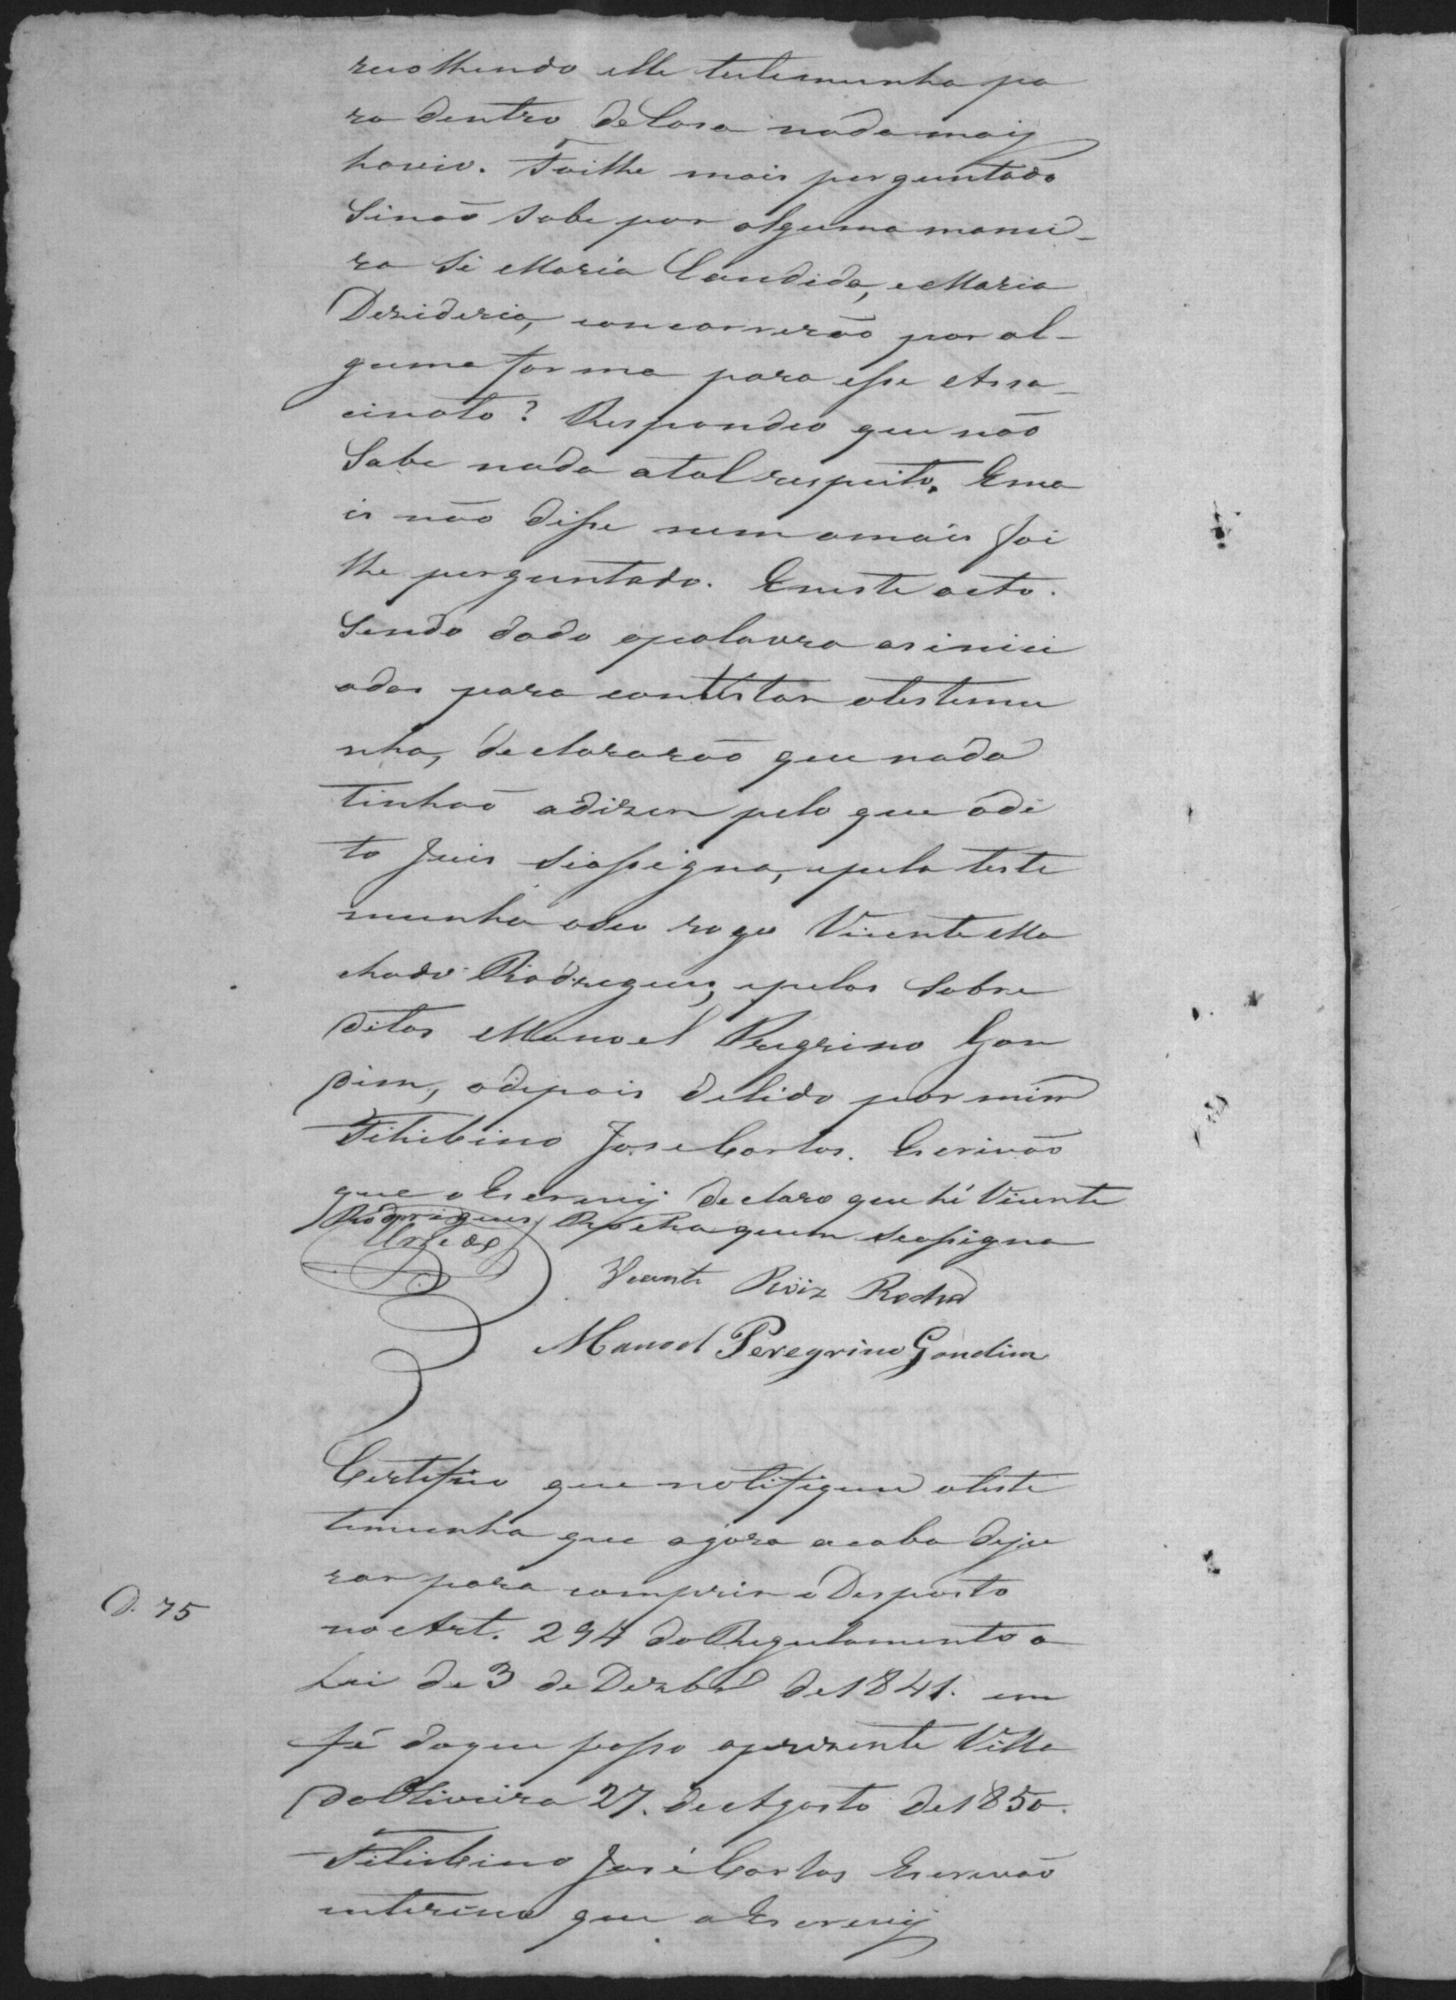 recolhendo elle testemunha pa
ra dentro de Casa nada mais
houvio. Foilhe mais perguntado
Sinão sabe por alguma manei-
ra Si Maria Candida, e Maria
Dezideria, concorrerão por al-
guma forma para esse Assa-
cinato? Respondeo que não
Sabe nada atal respeito. Ema
is não disse nem amais foi
lhe perguntado. Eneste acto.
Sendo dado apalavra as inici
adas para contestar atestemu
nha, declararão que nada
tinhão adizer pelo que o di
to Juis Siassigna, epela teste
munha aseu rogo Vicente Ma
chado Rodrigues, epelos Sobre
ditos Manoel Pregrino Gon
dim, e depois de lido por mim
Filibino Jose Carlos. Escrivão
que o Escrevy declaro que hé Vicente
Rodrigues Rocha quem seassigna
Vicente Roiz Rocha
Manoel Peregrino Gondim
Certifico que notifiquei ateste
temunha que agora acaba deju
rar para comprir o Desposto
D. 75
no Art. 294 do Regulamento a
Lei de 3 de Dezbro de 1841. em
fé doque passo apresente Villa
da Oliveira 27. de Agosto de 1850.
Filibino José Carlos Escrivão
interino que o Escrevy